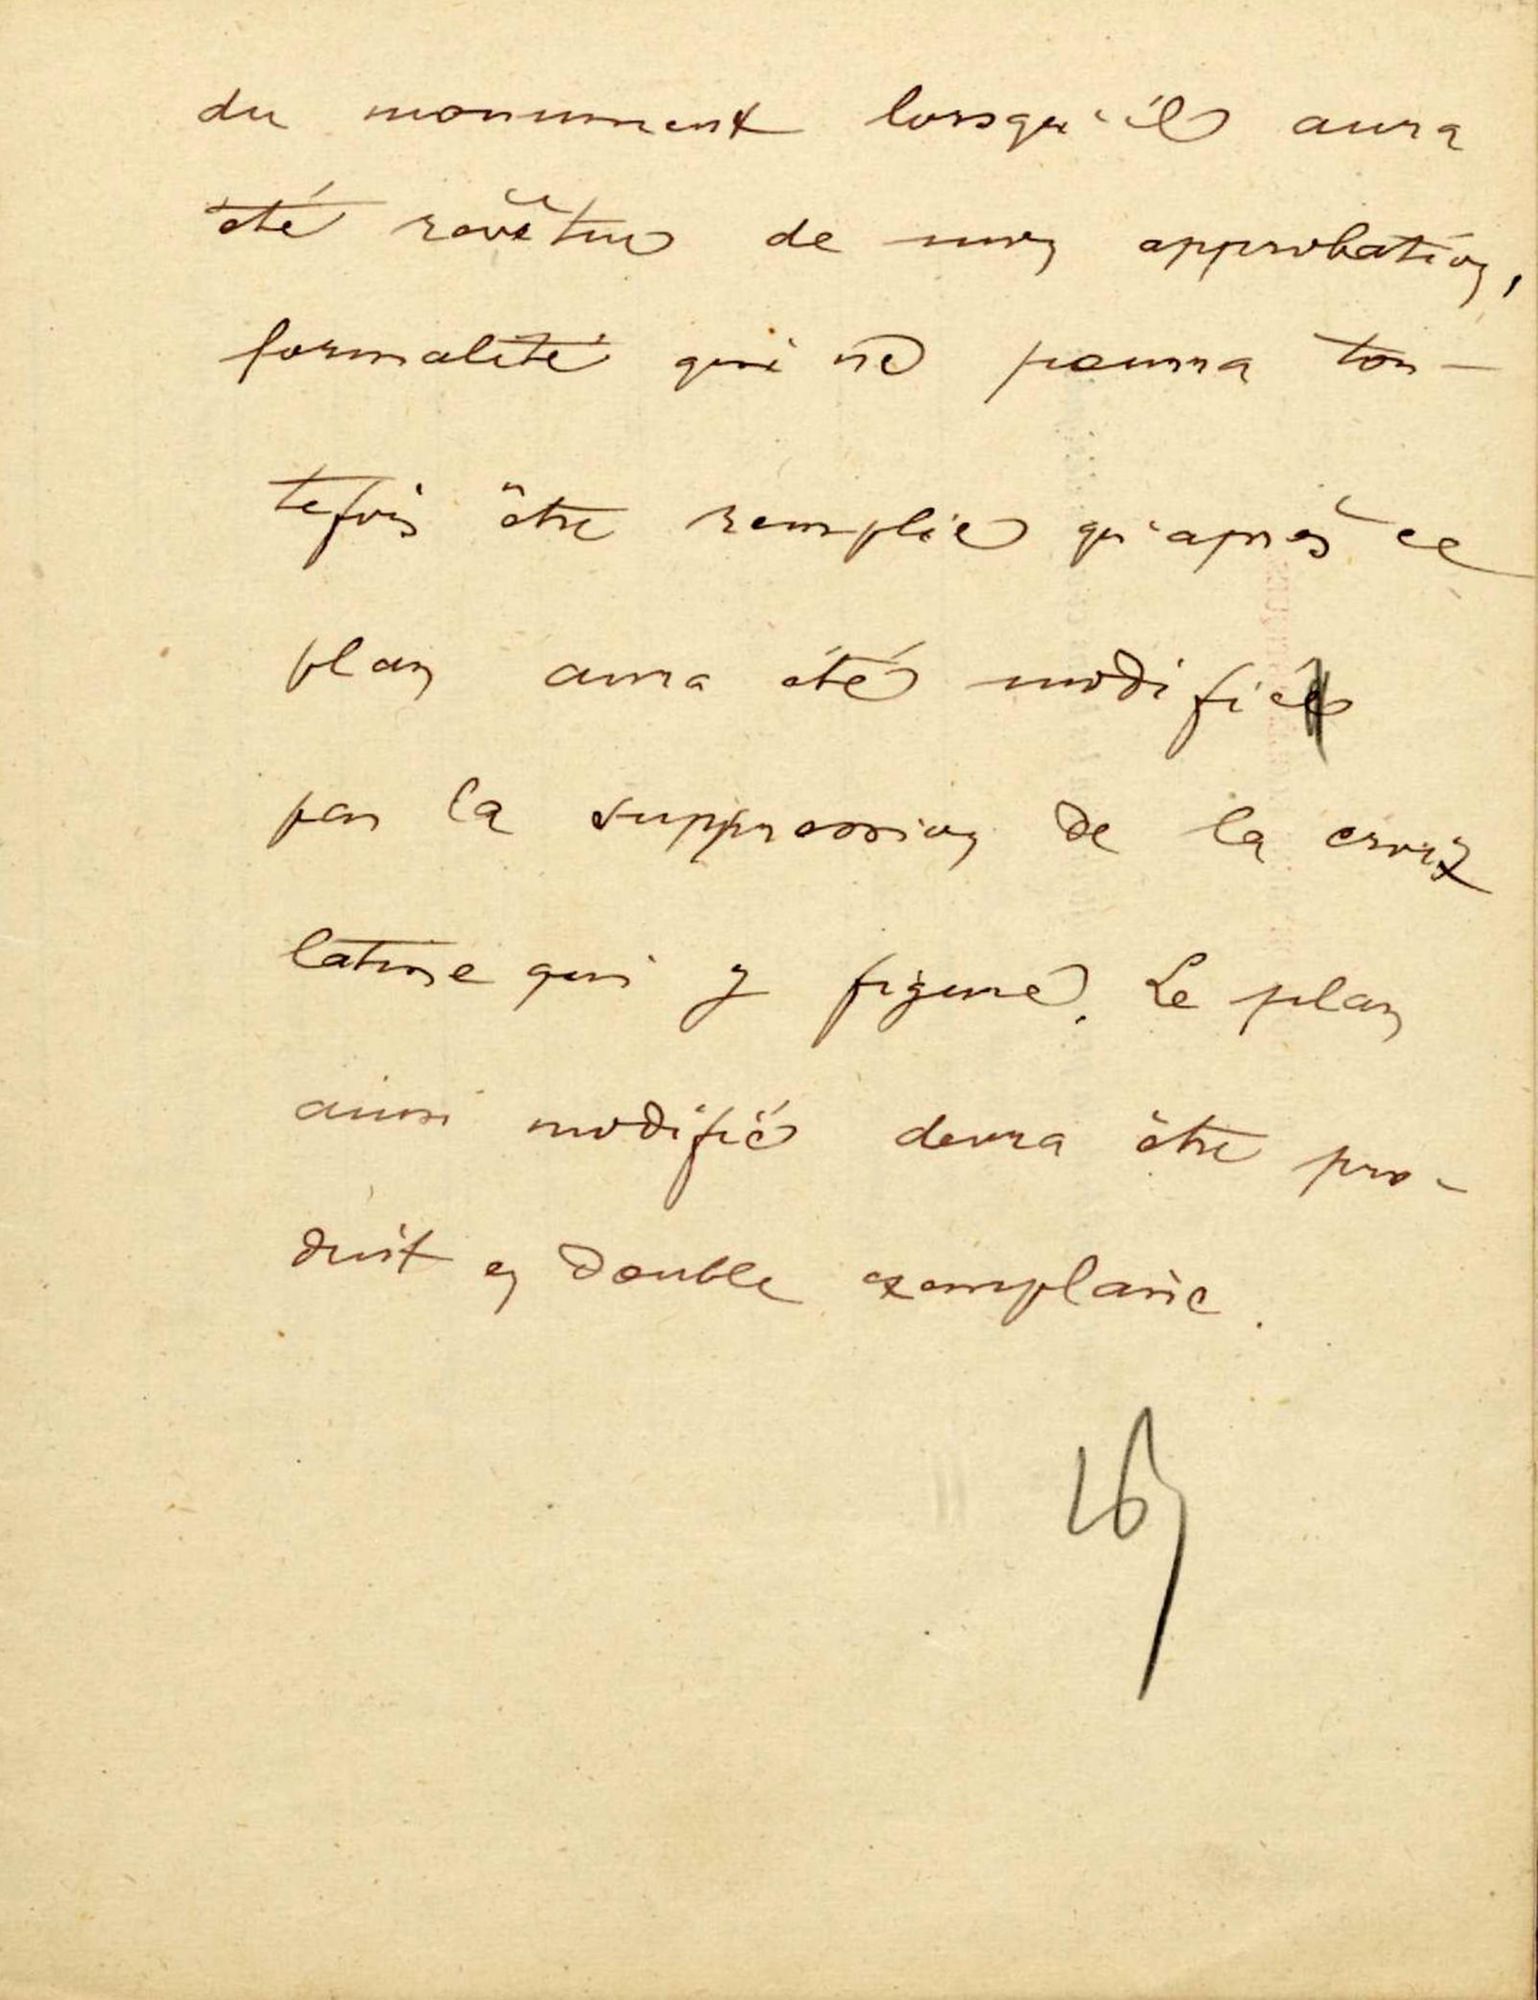 du monument lorsqu'il aura
été revêtue de mon approbation,
formalité qui ne pourra tou-
tefois être remplie qu'après ce
plan aura été modifié
par la suppression de la croix
latine qui y figure. Le plan
ainsi modifié devra être pro-
duit en double exemplaire.